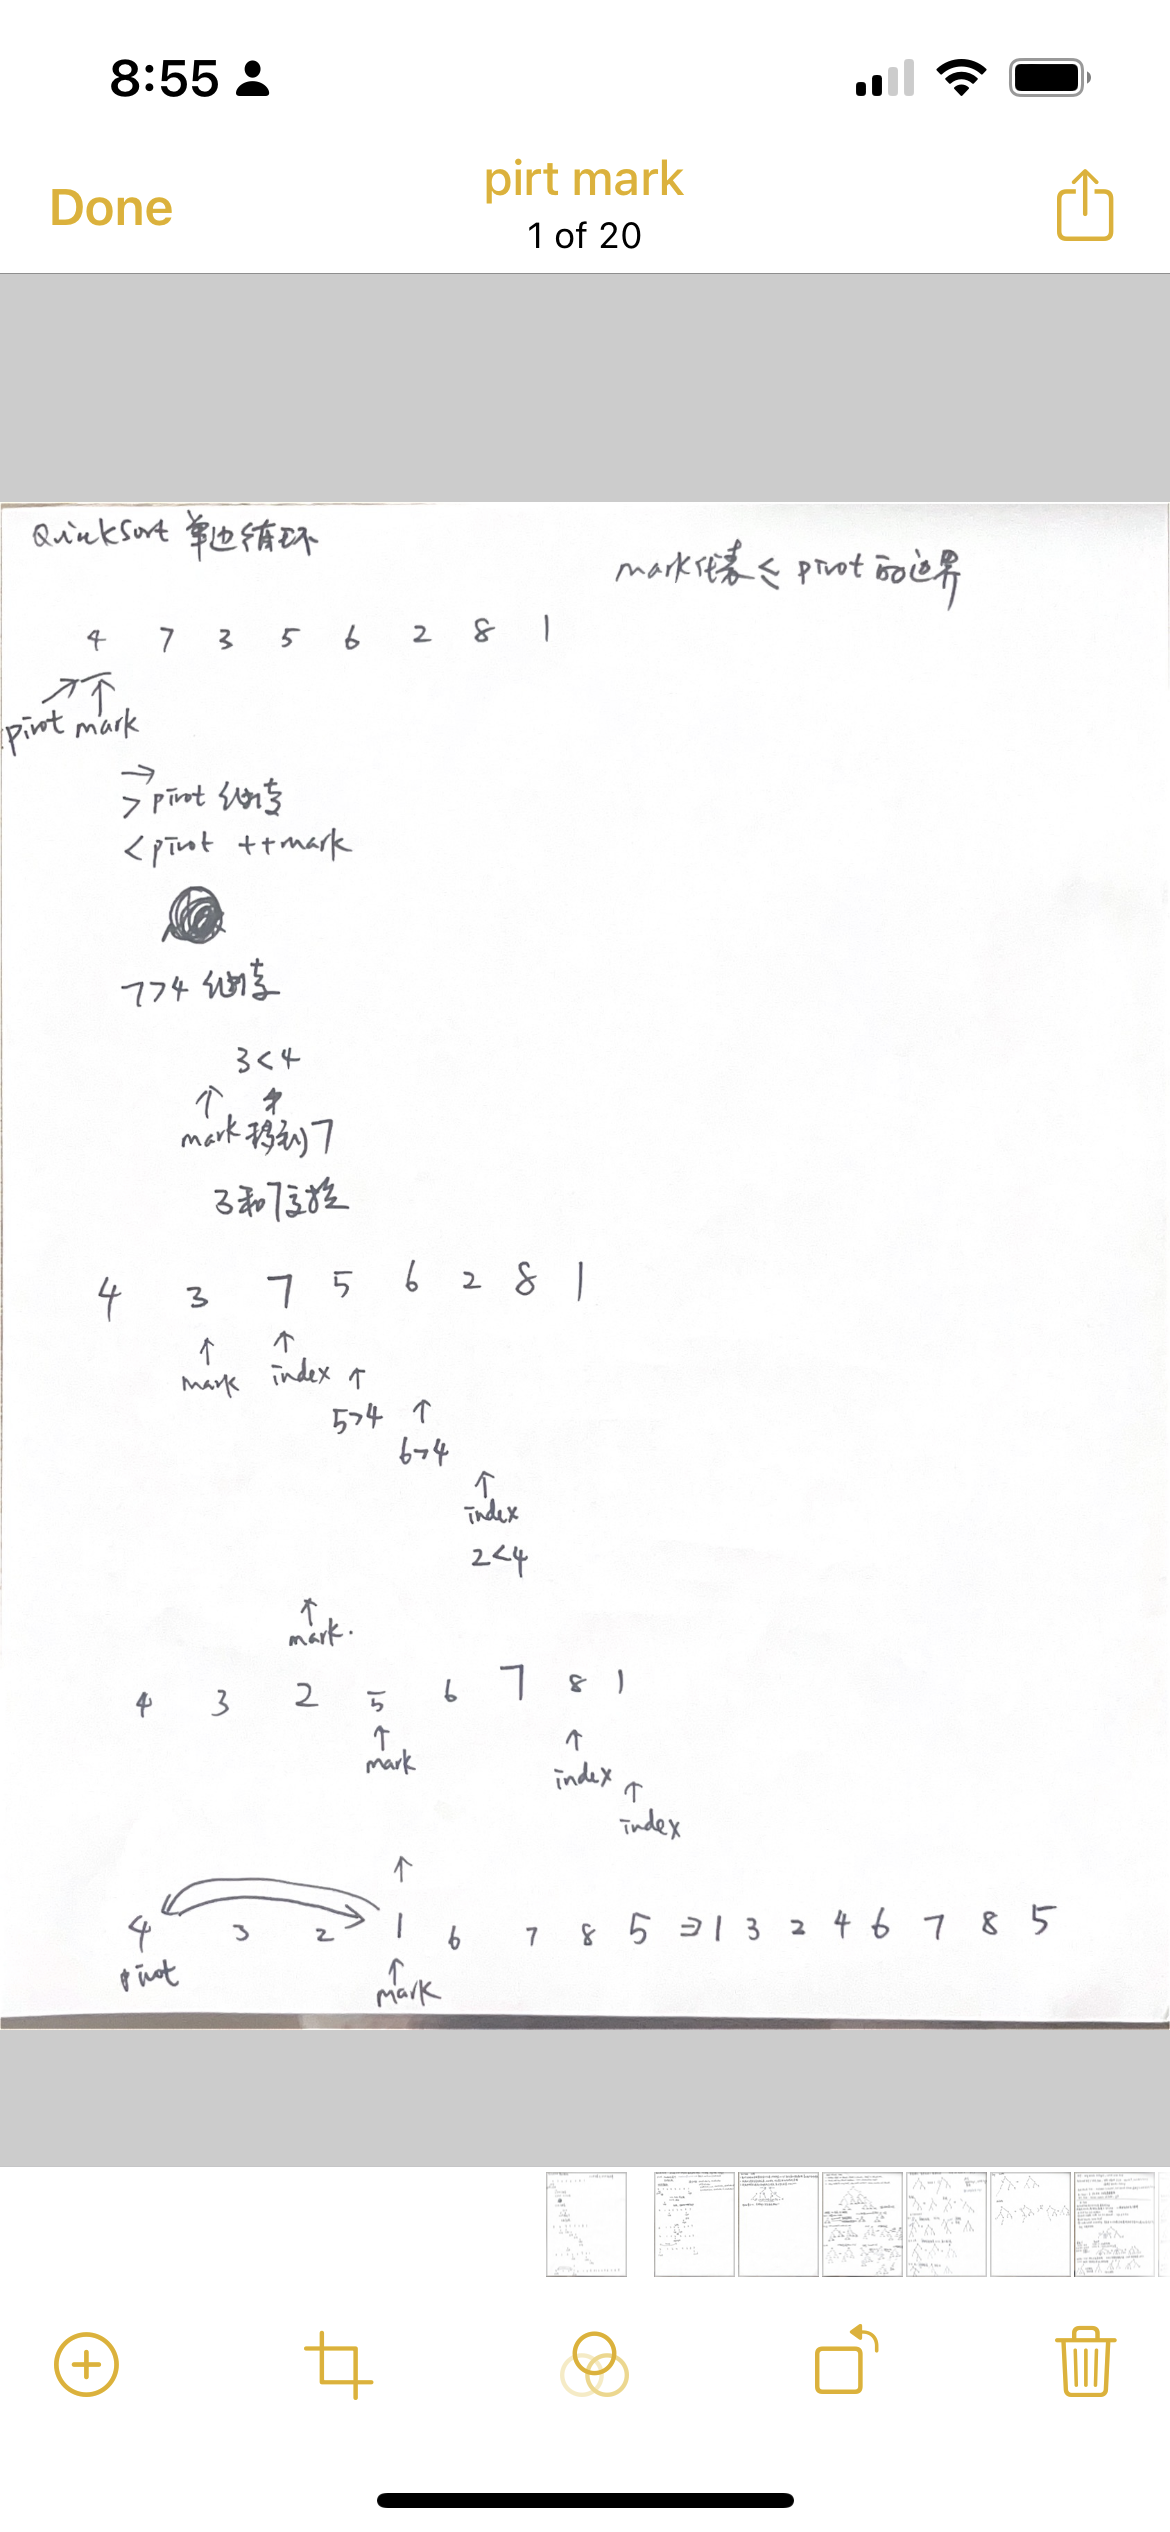 8:55
Done
pirt mark
1 of 20
QuickSort 单边循环
mark代表≤ pivot 的边界
4 7 3 5 6 2 8 1
pivot mark
> pivot 继续
< pivot ++mark
7>4 继续
3<4
mark 移到7
3和7交换
4 3 7 5 6 2 8 1
mark index
5>4
6>4
index
2<4
mark.
4 3 2 5 6 7 8 1
mark index
index
4 3 2 1 6 7 8 5 ⇒ 1 3 2 4 6 7 8 5
pivot mark